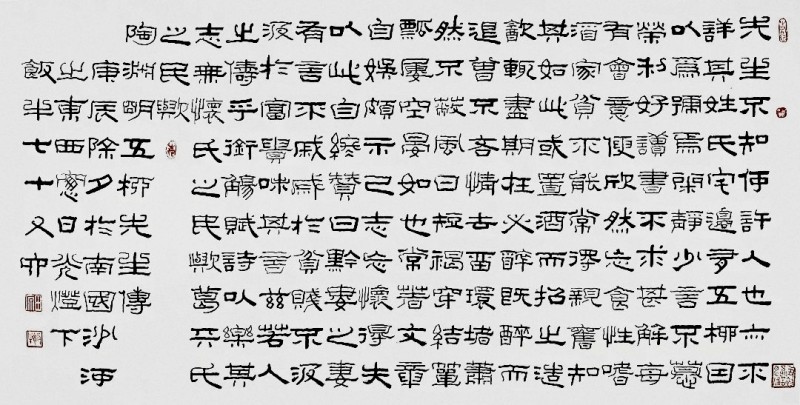 先生不知何許人也亦不
詳其姓氏宅邊有五柳因
以爲號焉閑靜少言不慕
榮利好讀書不求甚解每
有會意便欣然忘食性嗜
酒家貧不能常得親舊知
其如此或置酒而招之造
飲輒盡期在必醉既醉而
退曾不吝情去留環堵蕭
然不蔽風日短褐穿結簞
瓢屢空晏如也常著文章
自娛頗示己志忘懷得失
以此自終贊曰黔婁之妻
有言不戚戚於貧賤不汲
汲於富貴味其言茲若人
之儔乎銜觴賦詩以樂其
志無懷氏之民歟葛天氏
之民歟
陶淵明五柳先生傳
庚辰除夕於南國沙河
之東西窗日光燈下
飯牛七十又